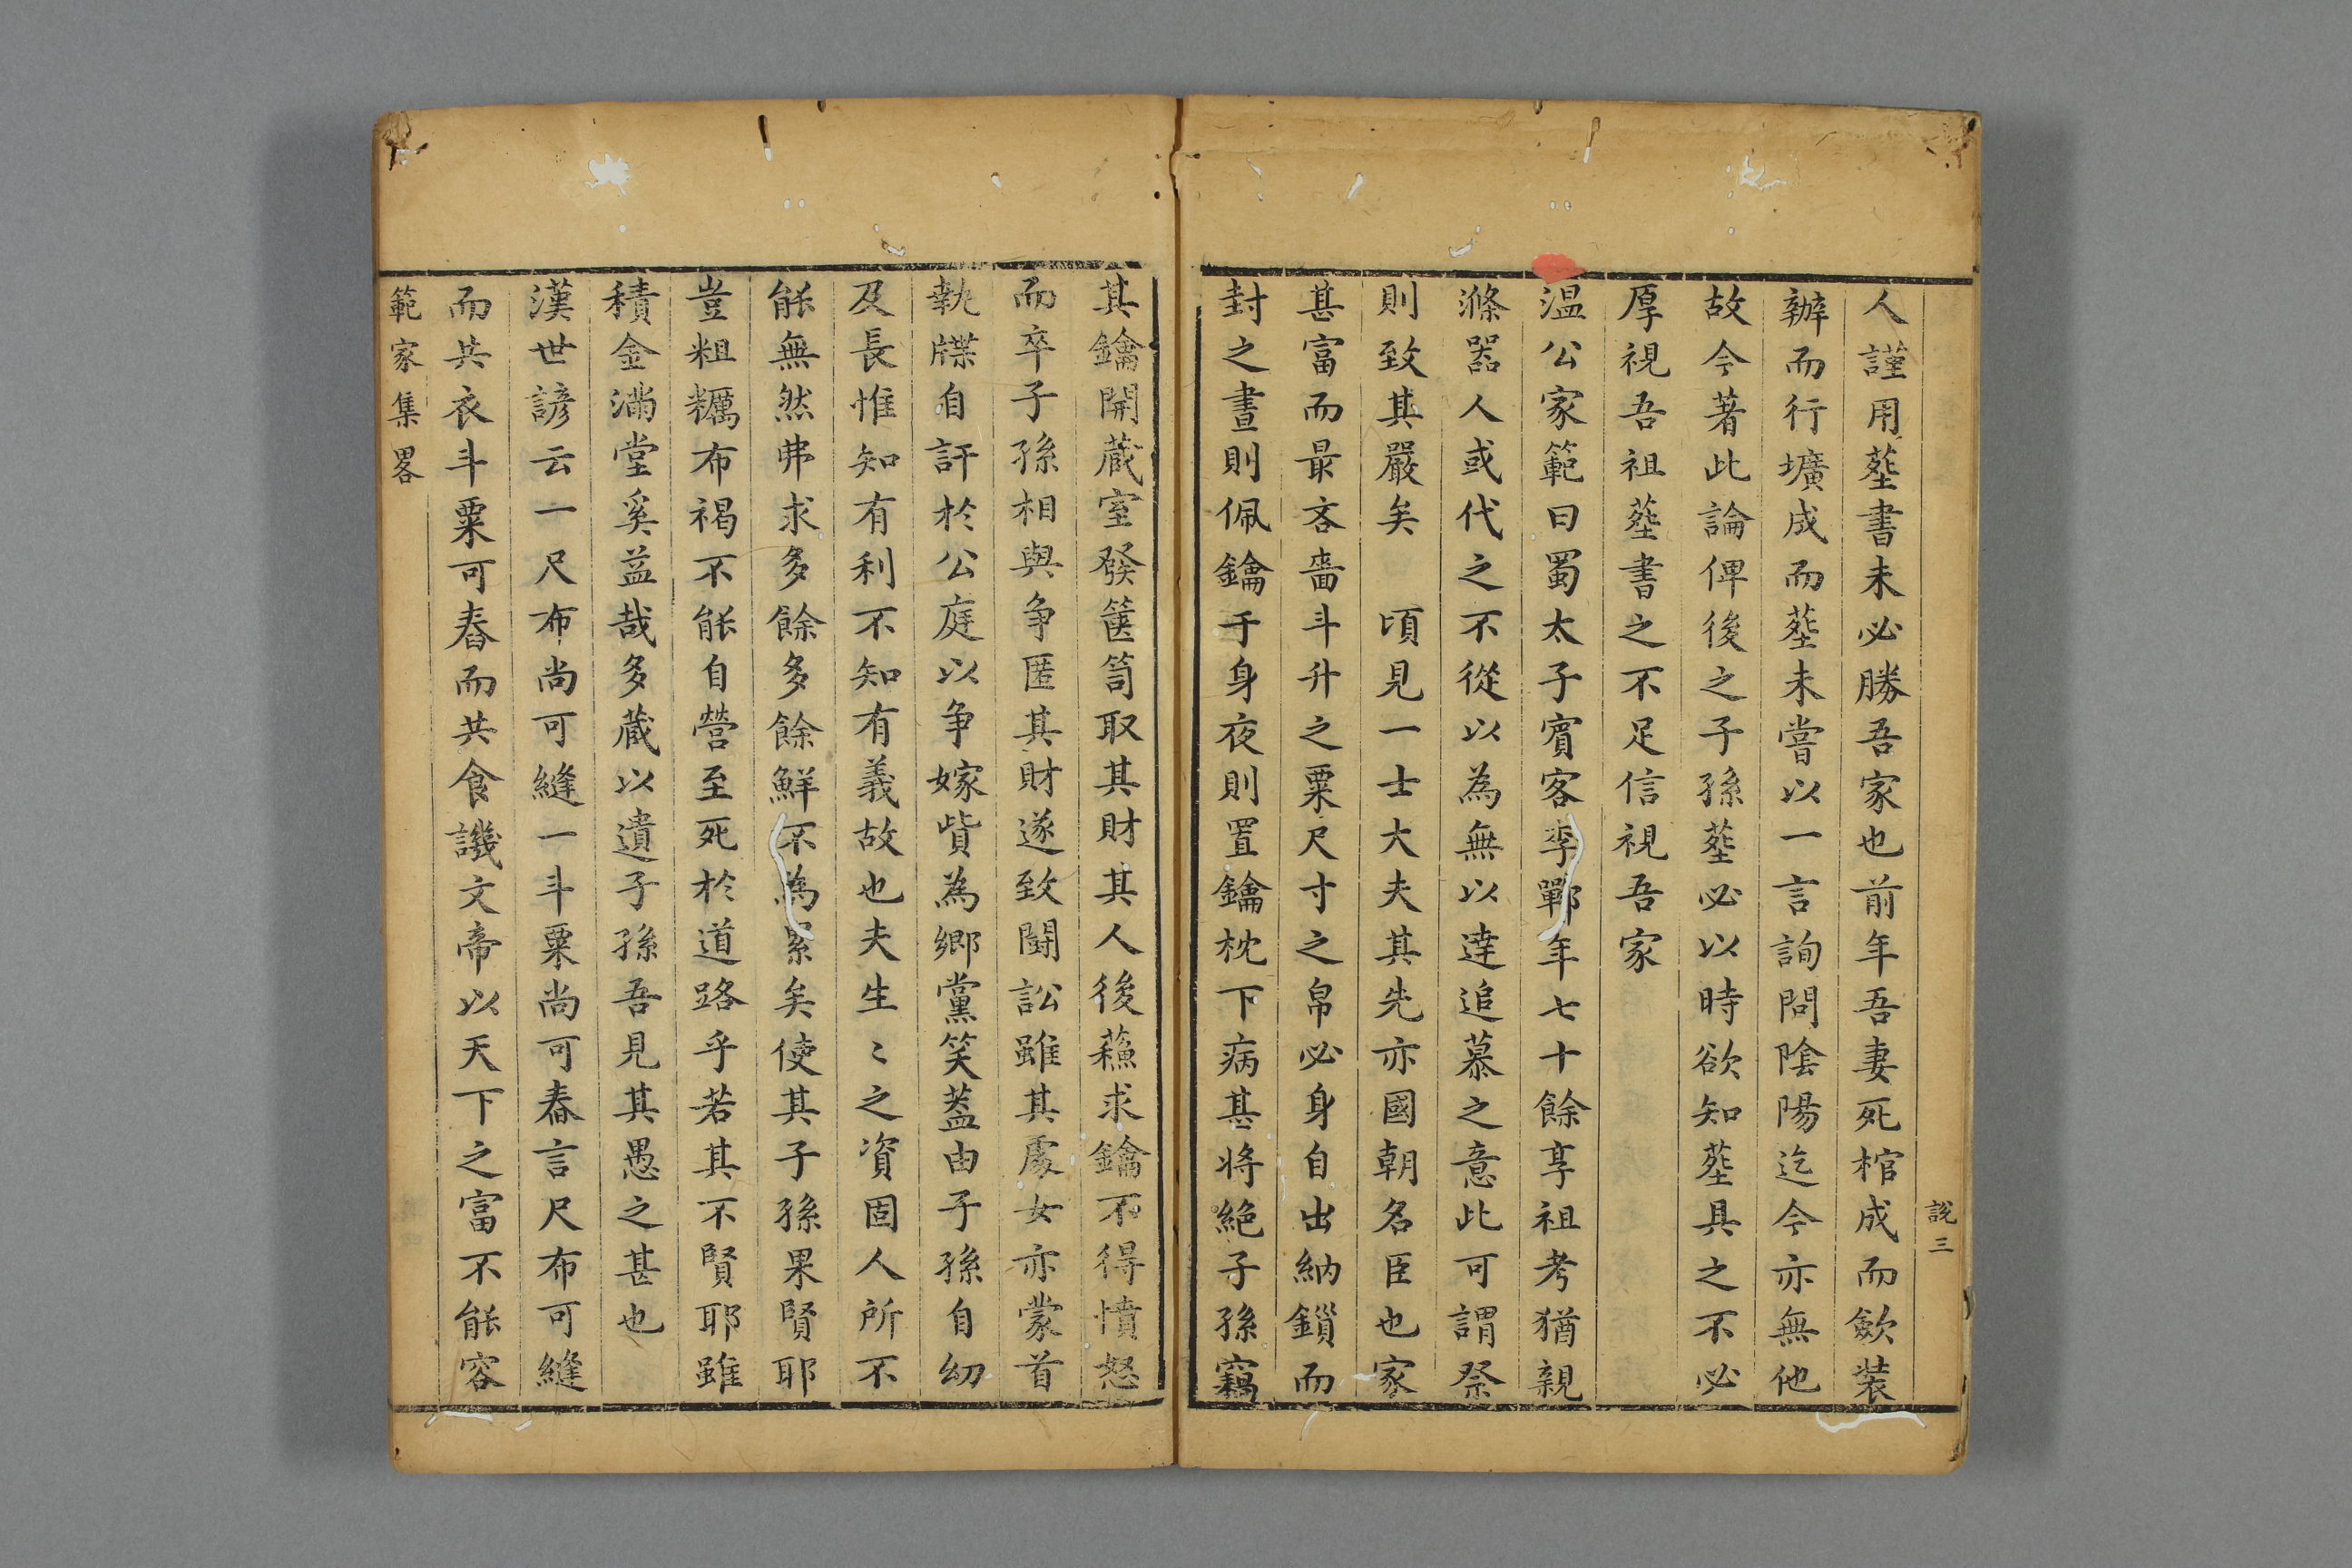 說三
人謹用塟書未必勝吾家也前年吾妻死棺成而歛裝
辦而行壙成而塟未嘗以一言詢問隂陽迄今亦無他
故今著此論俾後之子孫塟必以時欲知塟具之不必
厚視吾祖塟書之不足信視吾家
温公家範曰蜀太子賓客李鄲年七十餘享祖考猶親
滌器人或代之不從以為無以達追慕之意此可謂祭
則致其嚴矣　頃見一士大夫其先亦國朝名臣也家
甚富而最吝嗇斗升之粟尺寸之帛必身自出納鎖而
封之晝則佩鑰于身夜則置鑰枕下病甚将絶子孫竊
其鑰開蔵室發篋笥取其財其人後蘓求鑰不得憤怒
而卒子孫相與争匿其財遂致鬪訟雖其處女亦蒙首
執牒自訐於公庭以争嫁貲為鄉黨笑蓋由子孫自幼
及長惟知有利不知有義故也夫生〻之資固人所不
能無然弗求多餘多餘鮮不為累矣使其子孫果賢耶
豈粗糲布褐不能自營至死於道路乎若其不賢耶雖
積金滿堂奚益哉多蔵以遺子孫吾見其愚之甚也
漢世諺云一尺布尚可縫一斗粟尚可舂言尺布可縫
而共衣斗粟可舂而共食譏文帝以天下之富不能容
範家集畧